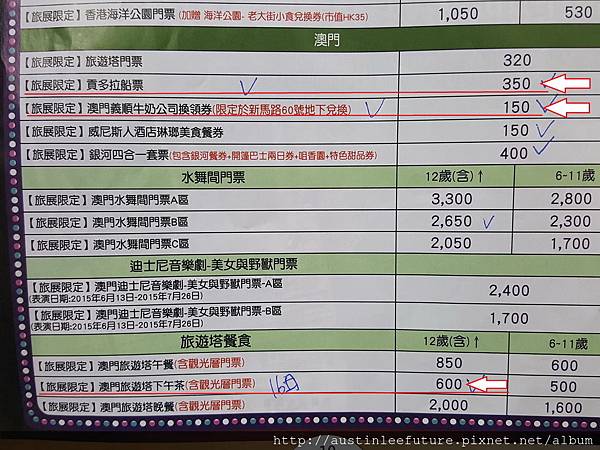 【旅展限定】香港海洋公園門票(加贈 海洋公園- 老大街小食兌換券(市值HK35) 1,050 530
澳門
【旅展限定】旅遊塔門票 320
【旅展限定】貢多拉船票 350
【旅展限定】澳門義順牛奶公司換領券(限定於新馬路60號地下兌換) 150
【旅展限定】威尼斯人酒店琳瑯美食餐券 150
【旅展限定】銀河四合一套票(包含銀河餐券+開篷巴士兩日券+咀香園+特色甜品券) 400
水舞間門票 12歲(含)↑ 6-11歲
【旅展限定】澳門水舞間門票A區 3,300 2,800
【旅展限定】澳門水舞間門票B區 2,650 2,300
【旅展限定】澳門水舞間門票C區 2,050 1,700
迪士尼音樂劇-美女與野獸門票
【旅展限定】澳門迪士尼音樂劇-美女與野獸門票-A區 2,400
(表演日期:2015年6月13日-2015年7月26日)
【旅展限定】澳門迪士尼音樂劇-美女與野獸門票-B區 1,700
(表演日期:2015年6月13日-2015年7月26日)
旅遊塔餐食 12歲(含)↑ 6-11歲
【旅展限定】澳門旅遊塔午餐(含觀光層門票) 850 600
【旅展限定】澳門旅遊塔下午茶(含觀光層門票) 600 500
【旅展限定】澳門旅遊塔晚餐(含觀光層門票) 2,000 1,600
http://austinleefuture.pixnet.net/album